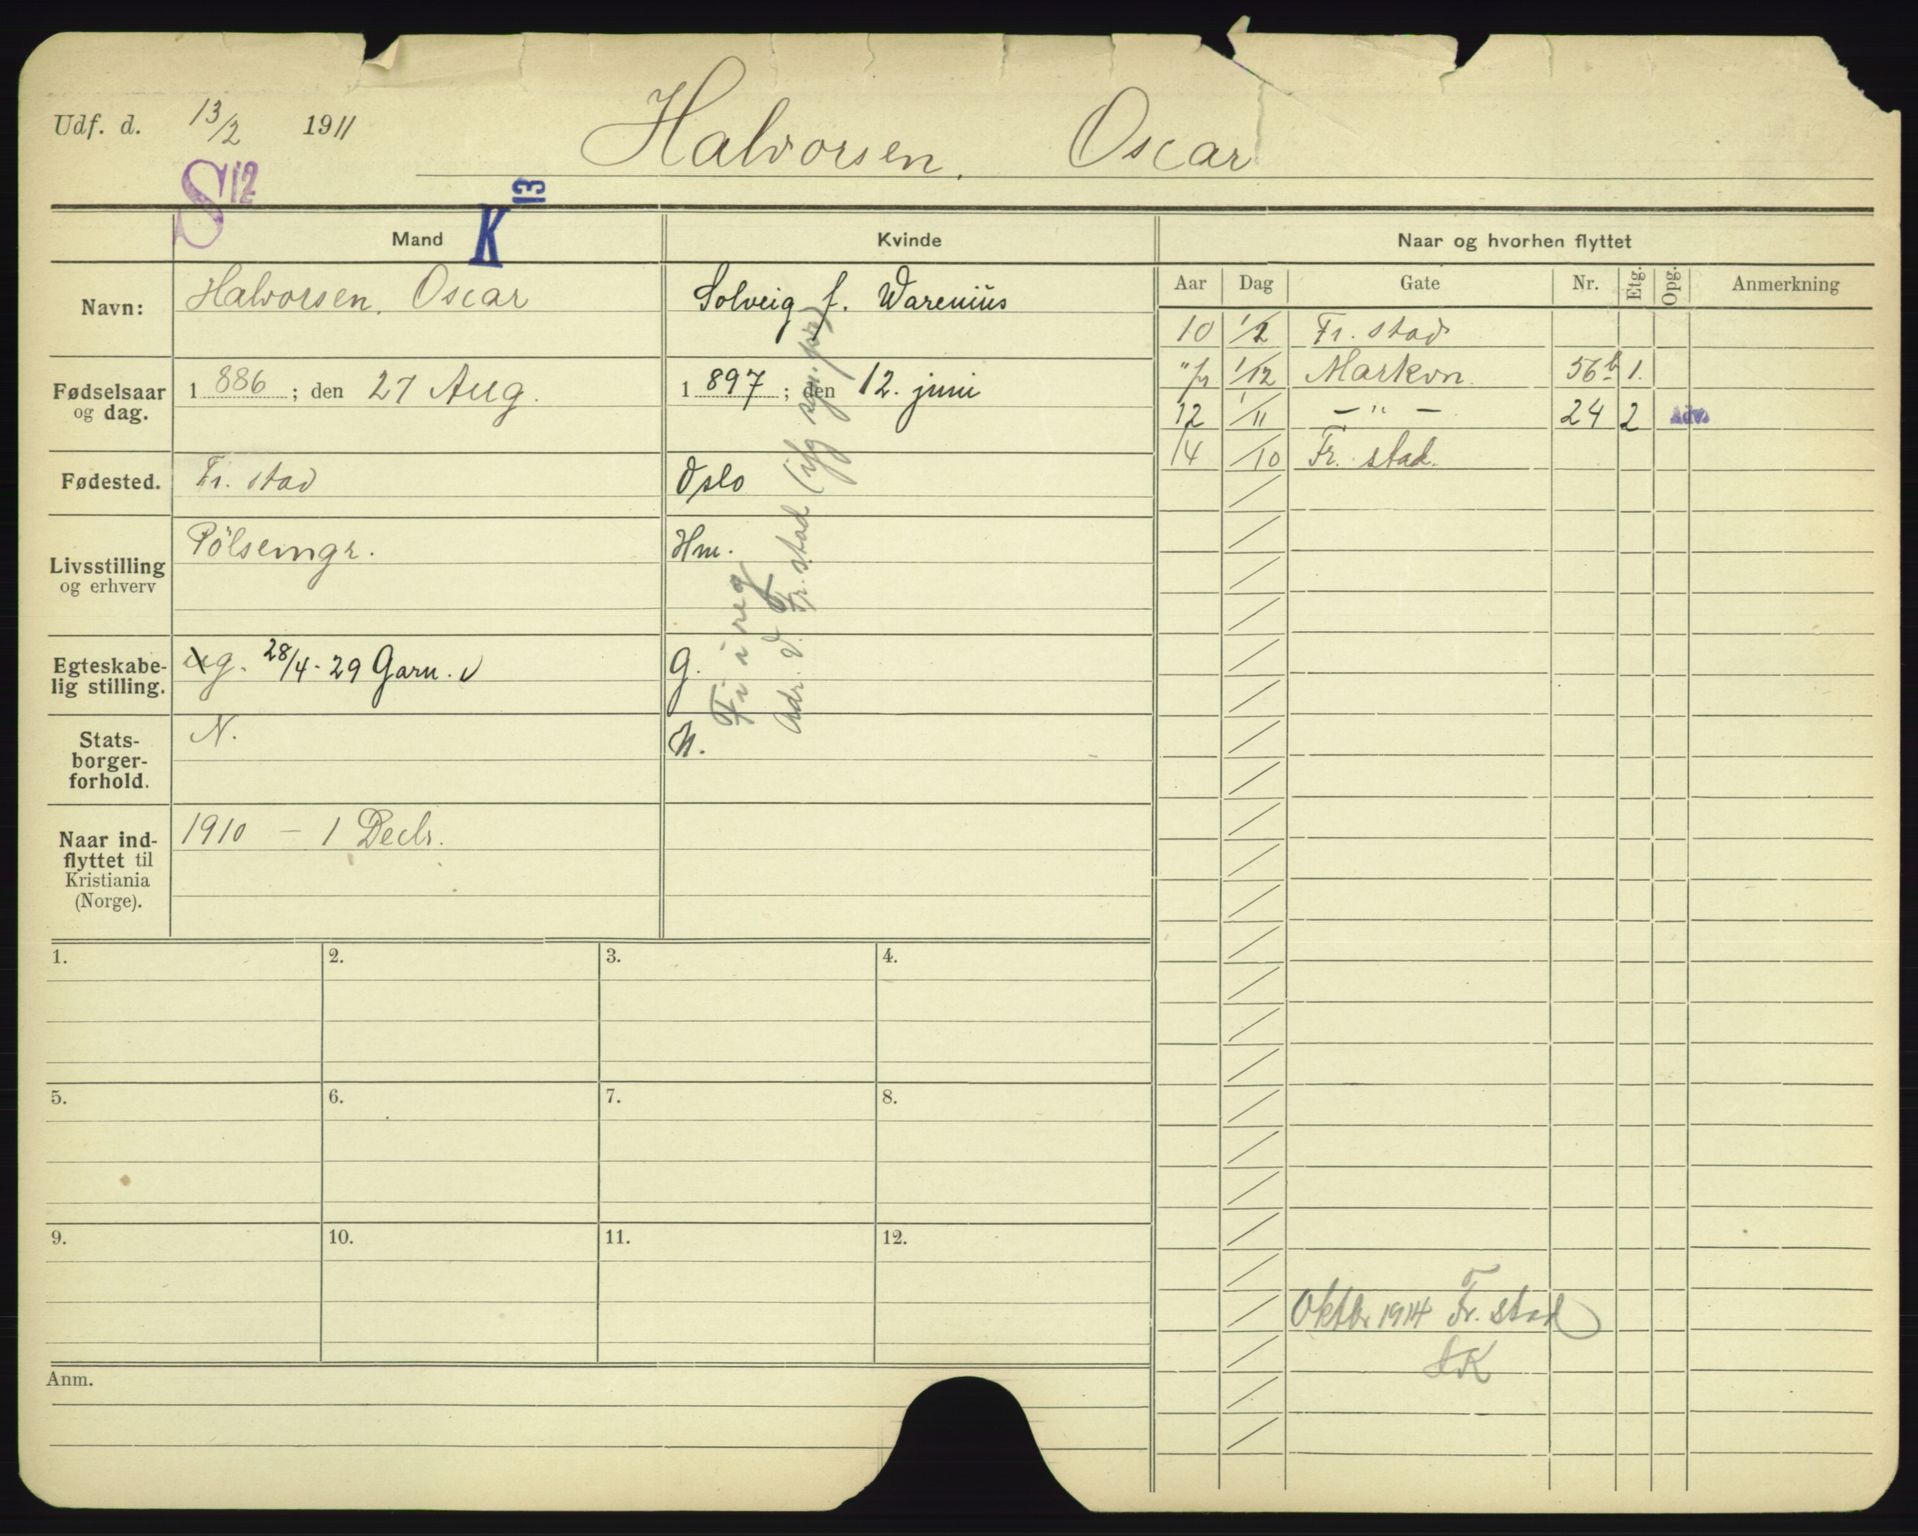 Udf. d. 13/2 1911
Halvorsen, Oscar
S 12
K 13
Mand
Kvinde
Naar og hvorhen flyttet
Navn:
Halvorsen, Oscar
Solveig f. Warenius
Fødselsaar og dag.
1886; den 27 Aug.
1897; den 12. juni
Fødested.
Fr. stad
Oslo
Livsstilling og erhverv
Pölsemgr.
Hm.
Egteskabe-
lig stilling.
ug. 28/4-29 Garn. v
G.
Stats-
borger-
forhold.
N.
N.
Naar ind-
flyttet til
Kristiania
(Norge).
1910 - 1 Decbr.
Fi i reg
Adr. d. Fr. stad
Aar Dag Gate Nr. Etg. Opg. Anmerkning
10 1/2 Fr. stad
" 1/12 Markvn. 56b 1.
12 1/11 — " — 24 2
14 /10 Fr. stad.
Oktbr 1914 Fr. stad
SK
1. 2. 3. 4.
5. 6. 7. 8.
9. 10. 11. 12.
Anm.